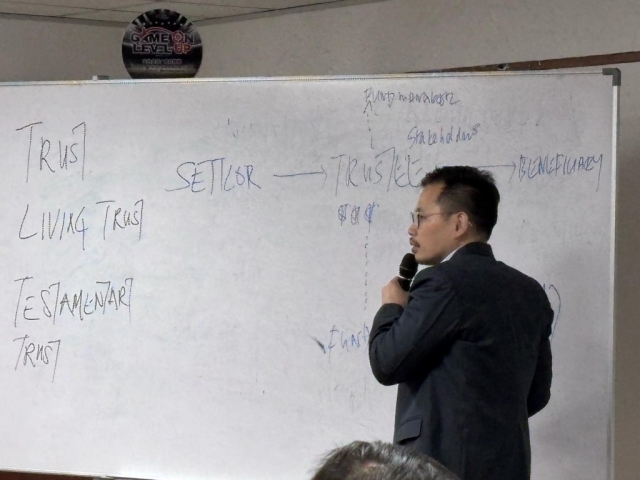 GAME ON
LEVEL UP
Fund manager
Stakeholders
TRUST
SETTLOR → TRUSTEE → BENEFICIARY
LIVING TRUST
$$$
TESTAMENTARY
TRUST